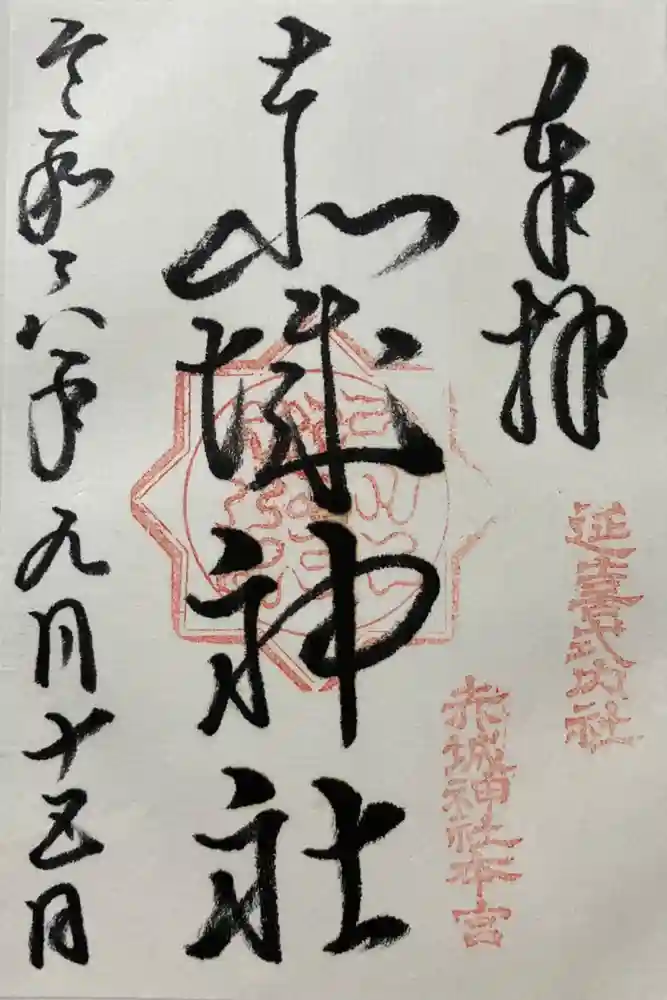 奉拝
延喜式内社
赤城神社本宮
赤城神社
令和六年九月十五日